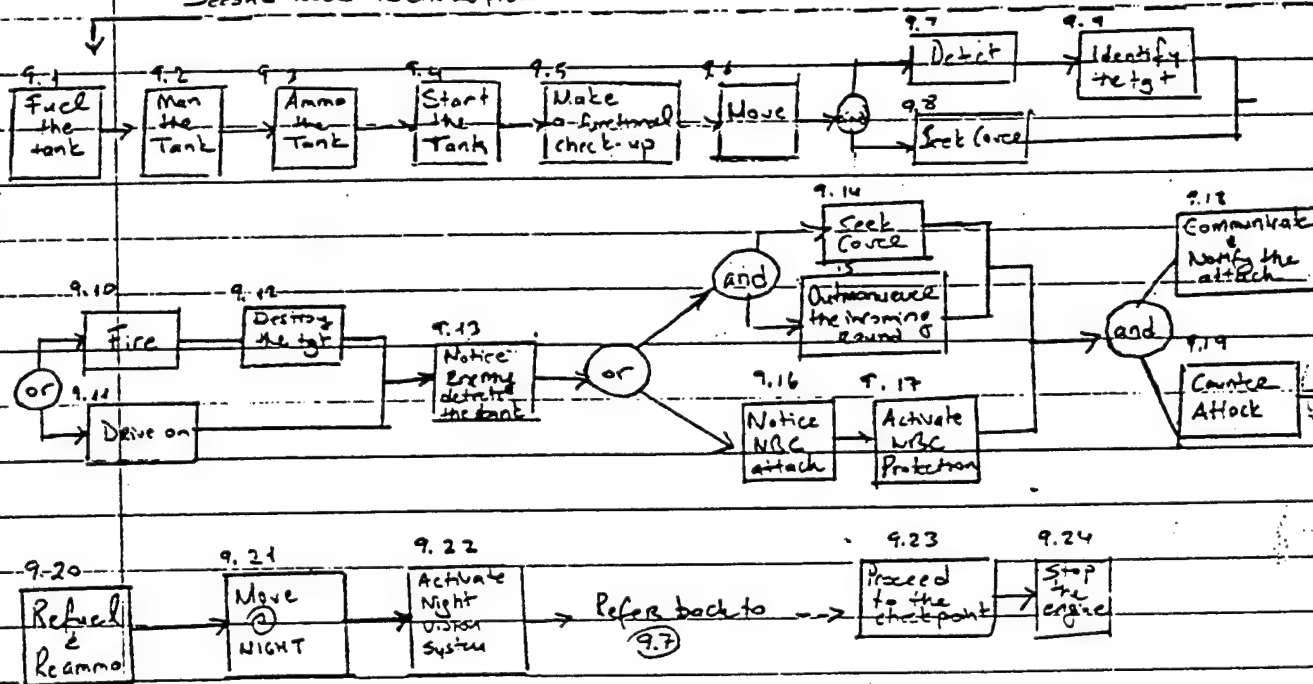 9.1
Fuel
the
tank
9.2
Man
the
Tank
9.3
Ammo
the
Tank
9.4
Start
the
Tank
9.5
Make
a functional
check-up
9.6
Move
and
9.7
Detect
9.9
Identify
the tgt
9.8
Seek Cover
or
9.10
Fire
9.12
Destroy
the tgt
9.11
Drive on
9.13
Notice
Enemy
detects
the tank
or
and
9.14
Seek
Cover
15
Outmaneuver
the incoming
Round
9.16
Notice
NBC
attack
9.17
Activate
NBC
Protection
and
9.18
Communicate
&
Notify the
attack
9.19
Counter
Attack
9.20
Refuel
&
Reammo
9.21
Move
@
NIGHT
9.22
Activate
Night
Vision
System
Refer back to
9.7
9.23
Proceed
to the
checkpoint
9.24
Stop
the
engine